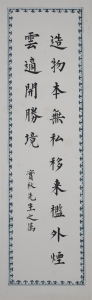 造物本無私移来檻外煙
雲適開勝境
實秋先生之属